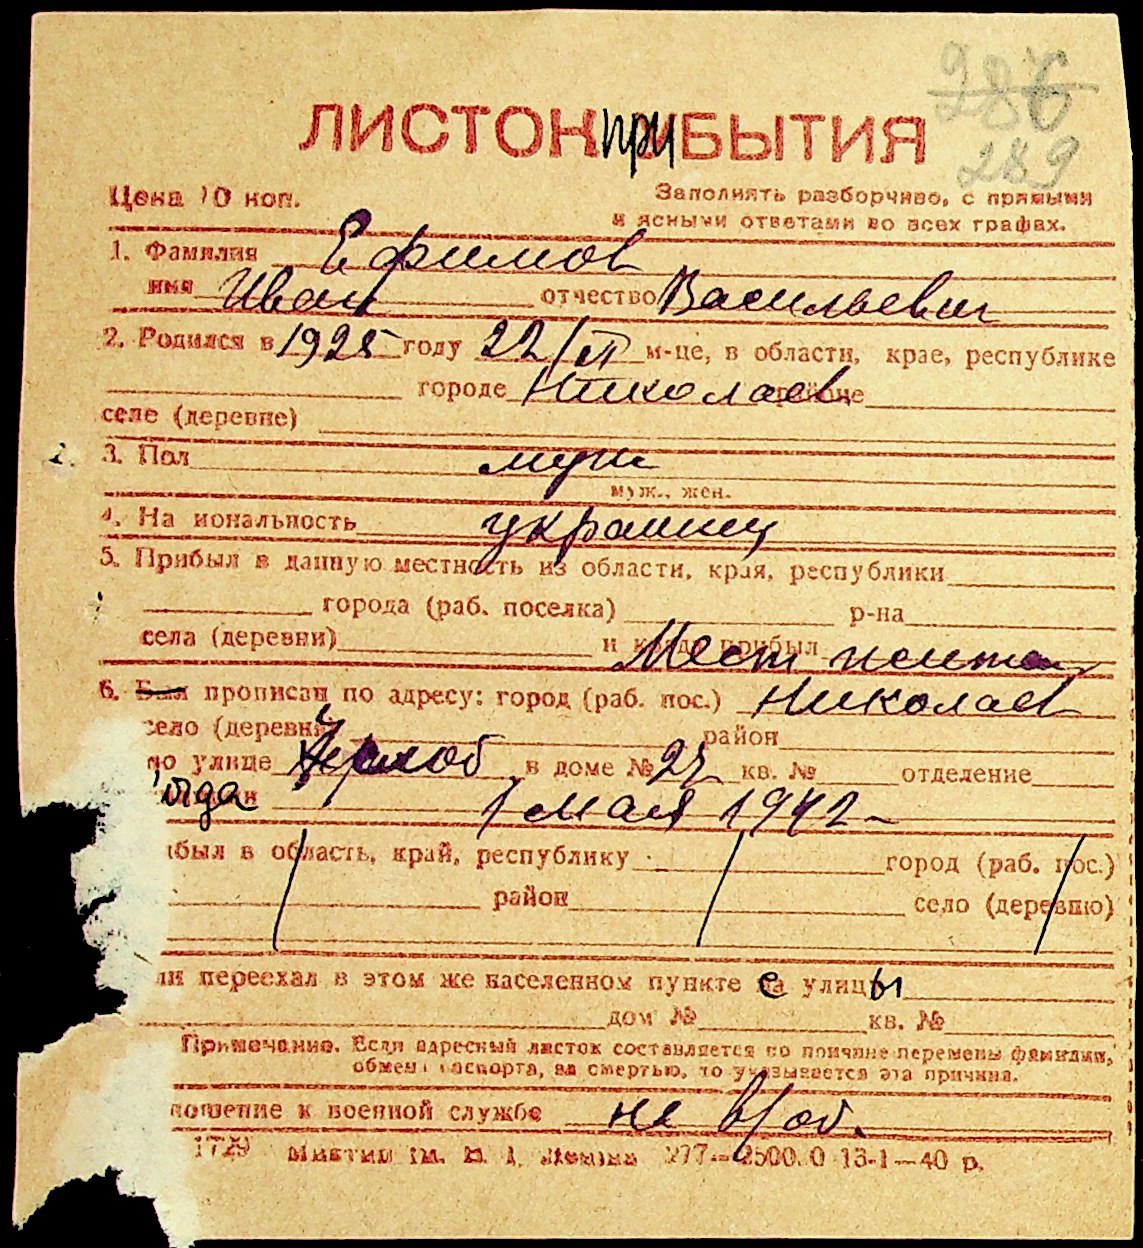 286
289
ЛИСТОК ПРИБЫТИЯ
Цена 10 коп. Заполнять разборчиво, с прямыми
и ясными ответами во всех графах.
1. Фамилия Ефимов
имя Иван отчество Васильевич
2. Родился в 1925 году 22/VI м-це, в области, крае, республике
городе Николаев районе
селе (деревне)
3. Пол муж
муж., жен.
4. Национальность украинец
5. Прибыл в данную местность из области, края, республики
города (раб. поселка) р-на
села (деревни) и когда прибыл
Мест жител
6. Был прописан по адресу: город (раб. пос.) Николаев
село (деревня) район
по улице в доме № 27 кв. № отделение
1 мая 1942
был в область, край, республику город (раб. пос.)
район село (деревню)
ли переехал в этом же населенном пункте с улицы
дом № кв. №
Примечание. Если адресный листок составляется по причине перемены фамилии,
обмена паспорта, за смертью, то указывается эта причина.
ношение к военной службе не в/об.
1729 277—2500.0 13-1—40 р.